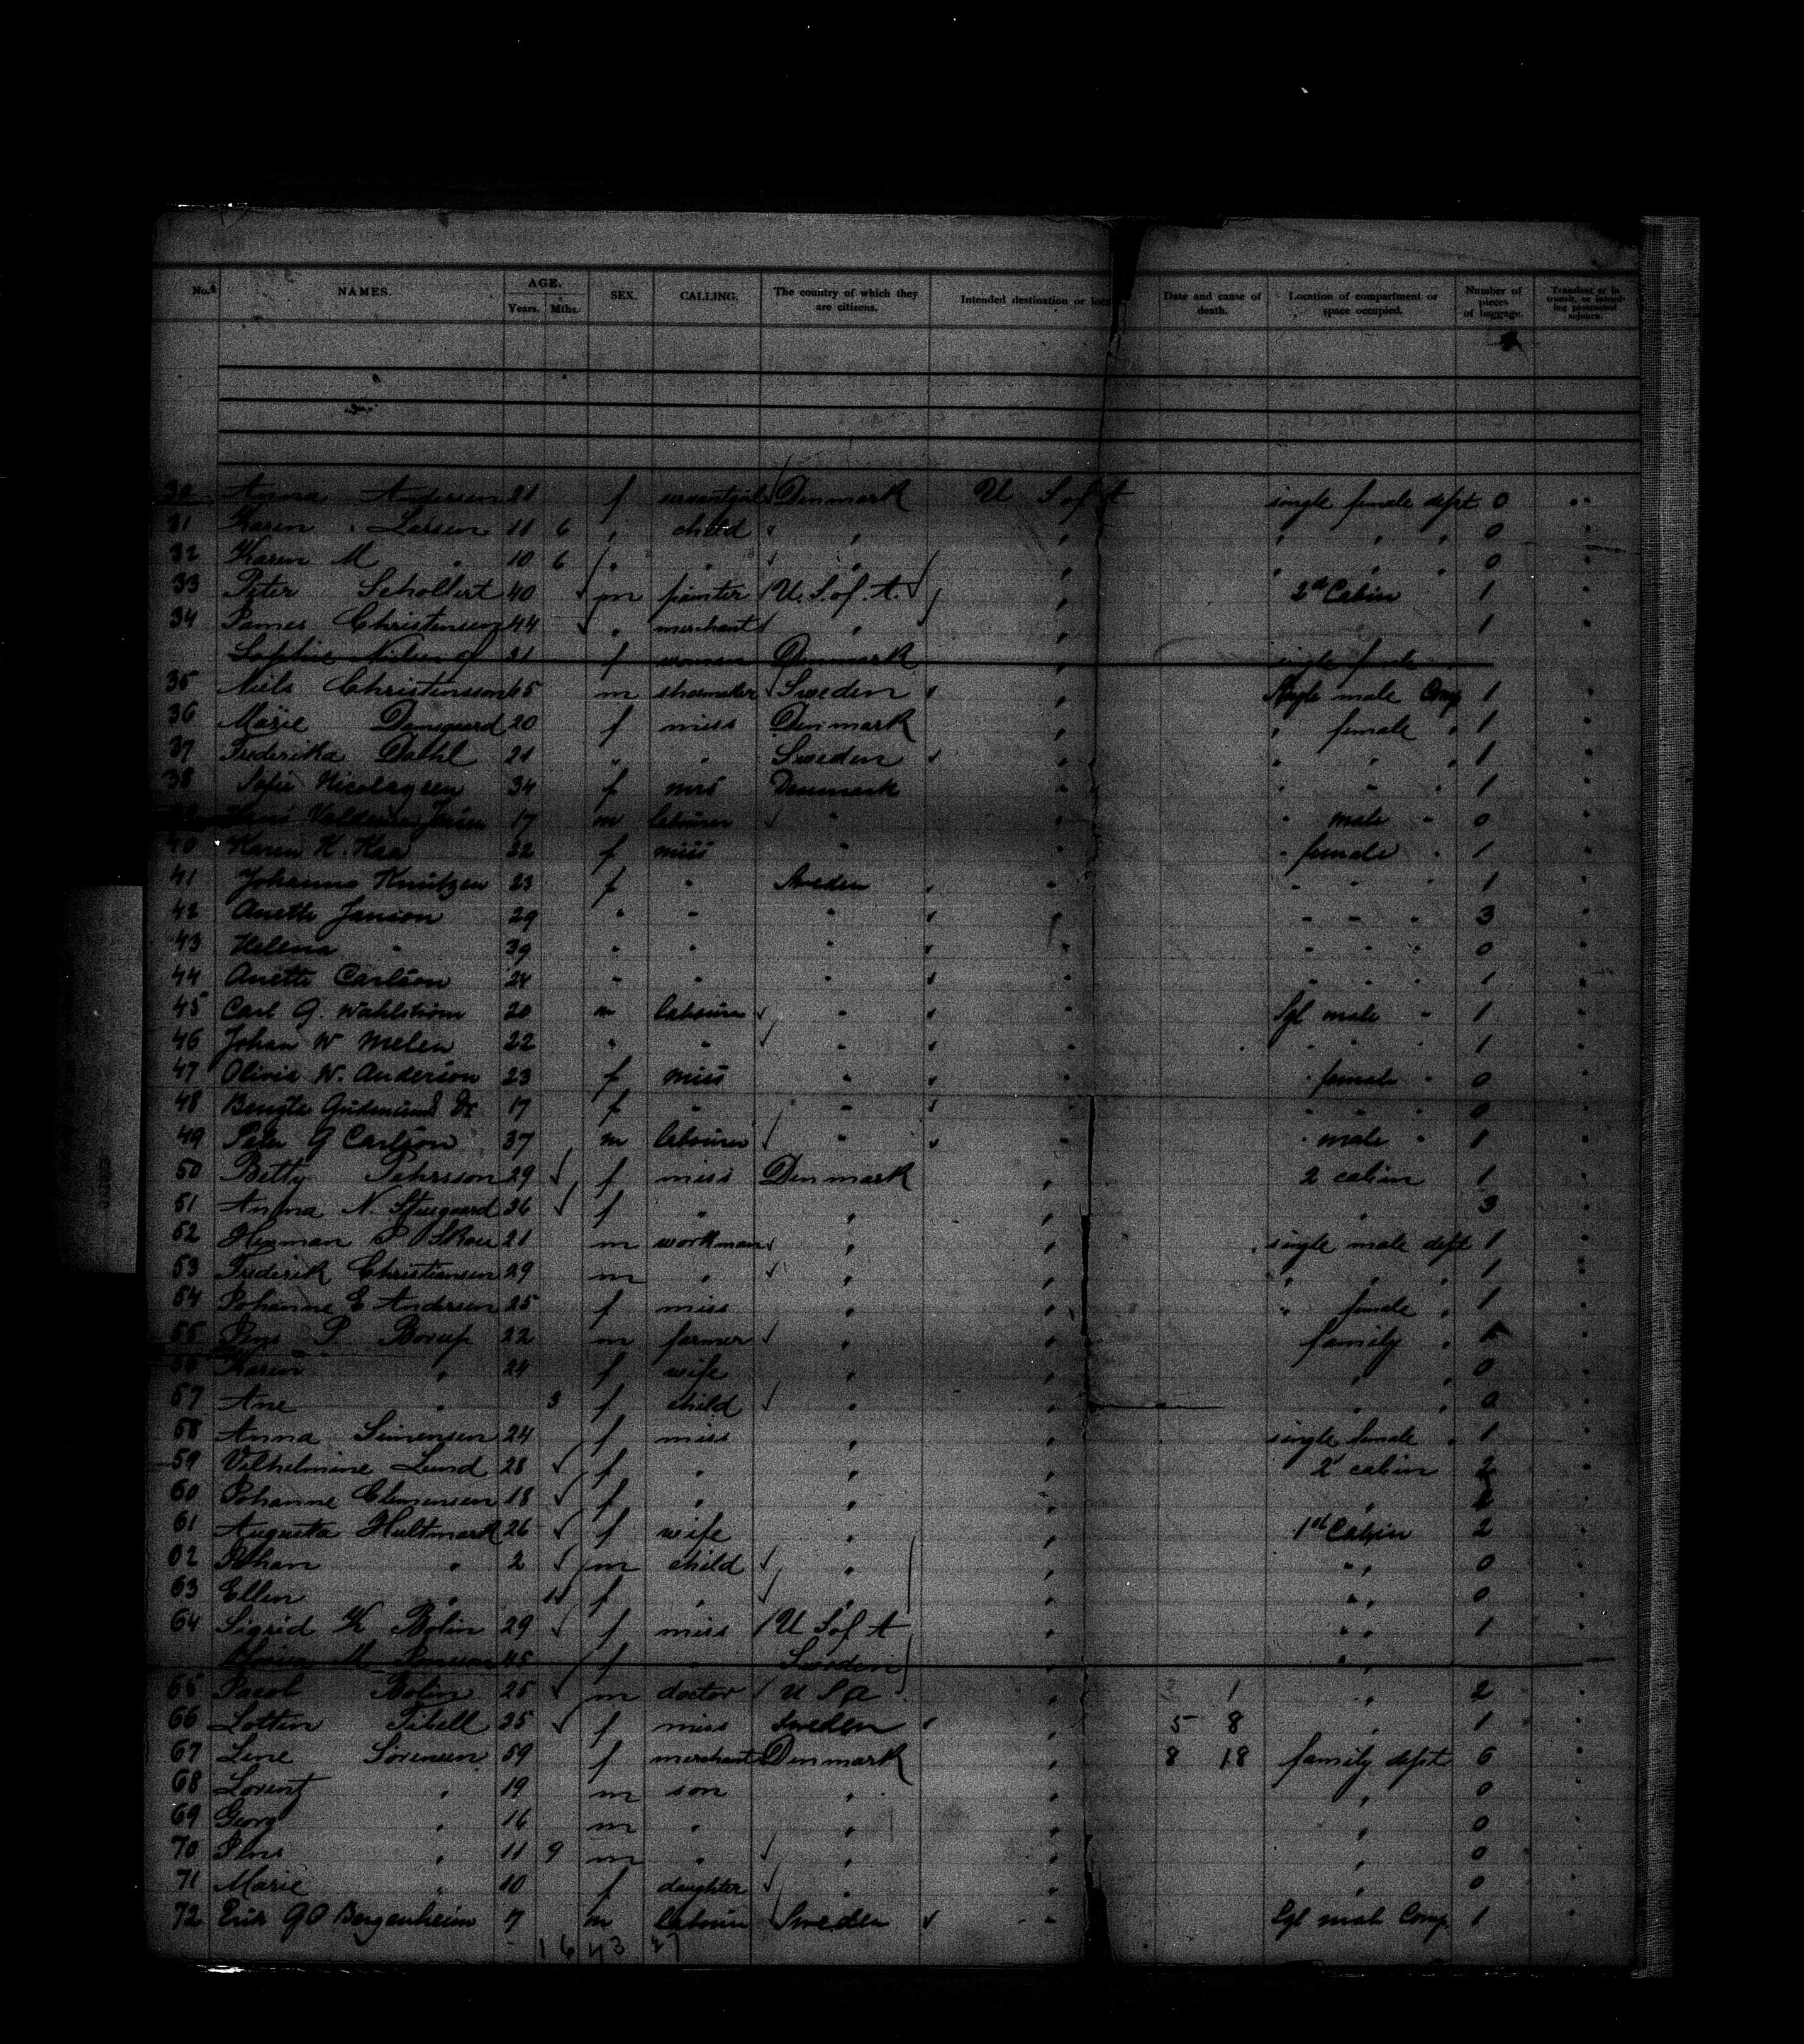 No.s NAMES. AGE. Years. Mths. SEX. CALLING. The country of which they are citizens. Intended destination or Date and cause of death. Location of compartment or space occupied. Number of pieces of baggage. Transient or in transit, or intending protracted sojourn.
30 Anna Andersen 21 f servantgirl Denmark U S of A single female dept 0 "
31 Karen Larsen 11 6 " child " " " " " 0 "
32 Karen M " 10 6 " " " " " " " 0 "
33 Peter Schollert 40 m painter U. S. of. A. " 2d Cabin 1 "
34 James Christensen 44 " merchant " " 1 "
Sophie Nielsen 21 f woman Denmark " single female
35 Niels Christensson 65 m shoemaker Sweden " Single male Comp 1 "
36 Marie Damgaard 20 f miss Denmark " " female " 1 "
37 Frederika Dahl 21 " " Sweden " " " " 1 "
38 Sofie Nicolaysen 34 f mrs Denmark " " " " 1 "
39 Valdemar 17 m labourer " " " male " 0 "
40 Karen K. 32 f miss " " " female " 1 "
41 Johanna Knutzen 23 f " Sweden " " " 1 "
42 Anette Janson 29 " " " " " " " 3 "
43 Helena " 39 " " " " " " " 0 "
44 Anette Carlson 24 " " " " " " " 1 "
45 Carl G. Wahlström 20 m labourer " " Sgl male " 1 "
46 Johan W Melen 22 " " " " " " " 1 "
47 Olivia N. Anderson 23 f miss " " " female " 0 "
48 Bengta 17 f " " " " " " 0 "
49 Peter G Carlson 37 m labourer " " " male " 1 "
50 Betty Pehrsson 29 f miss Denmark " 2 cabin 1 "
51 Anna N. 36 f " " " " 3 "
52 Herman P Skou 21 m workman " " single male dept 1 "
53 Frederik Christiansen 29 m " " " " " " 1 "
54 Johanne E Andersen 25 f miss " " " female " 1 "
55 Jens P Borup 22 m farmer " " family " 1 "
56 Karen " 24 f wife " " " " 0 "
57 Ane " 3 f child " " " " 0 "
58 Anna Simonsen 24 f miss " " single female " 1 "
59 Vilhelmine Lund 28 f " " " 2 cabin 2 "
60 Johanne Clemensen 18 f " " " " 2 "
61 Augusta Hultmark 26 f wife " " 1st Cabin 2 "
62 Johan " 2 m child " " " 0 "
63 Ellen " 11 f " " " " 0 "
64 Sigrid K Bolin 29 f miss U S of A " " 1 "
M 45 f " Sweden " "
65 Jacob Bolin 25 m doctor U S A " 1 " 2 "
66 Lotten Tibell 25 f miss Sweden " 5 8 " 1 "
67 Line Sörensen 59 f merchant Denmark " 8 18 family dept 6 "
68 Lorentz " 19 m son " " " 0 "
69 Georg " 16 m " " " " 0 "
70 Jens " 11 9 m " " " " 0 "
71 Marie " 10 f daughter " " " 0 "
72 Erik G O Bergenheim 7 m labourer Sweden " Sgl male Comp. 1 "